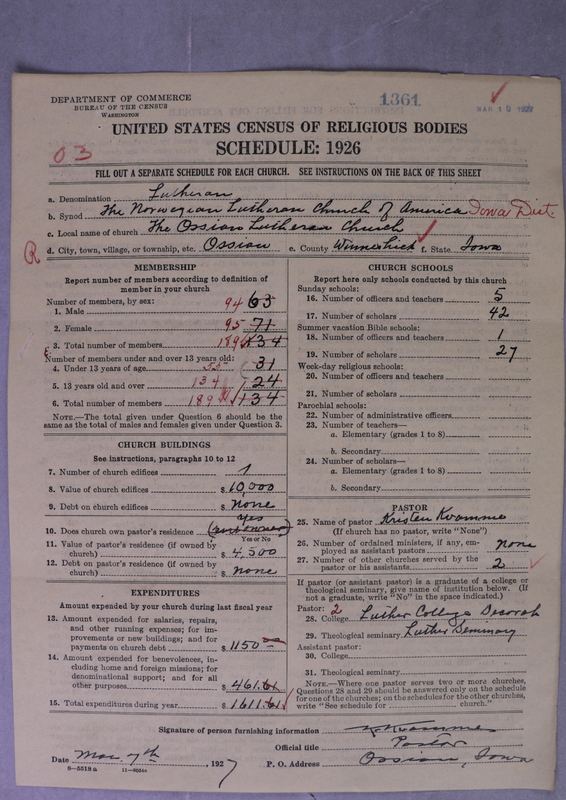 DEPARTMENT OF COMMERCE
BUREAU OF THE CENSUS
WASHINGTON
1361
MAR 10 1927
UNITED STATES CENSUS OF RELIGIOUS BODIES
SCHEDULE: 1926
03
FILL OUT A SEPARATE SCHEDULE FOR EACH CHURCH. SEE INSTRUCTIONS ON THE BACK OF THIS SHEET
a. Denomination Lutheran
b. Synod The Norwegian Lutheran Church of America Iowa Dist.
c. Local name of church The Ossian Lutheran Church
R d. City, town, village, or township, etc. Ossian e. County Winneshiek f. State Iowa
MEMBERSHIP
Report number of members according to definition of
member in your church
Number of members, by sex:
1. Male 94 63
2. Female 95 71
3. Total number of members 189 134
Number of members under and over 13 years old:
4. Under 13 years of age 31
5. 13 years old and over 134
6. Total number of members 189 134
NOTE.—The total given under Question 6 should be the
same as the total of males and females given under Question 3.
CHURCH BUILDINGS
See instructions, paragraphs 10 to 12
7. Number of church edifices 1
8. Value of church edifices $ 10,000
9. Debt on church edifices $ none
10. Does church own pastor's residence Yes
Yes or No
11. Value of pastor's residence (if owned by
church) $ 4,500
12. Debt on pastor's residence (if owned by
church) $ none
EXPENDITURES
Amount expended by your church during last fiscal year
13. Amount expended for salaries, repairs,
and other running expenses; for im-
provements or new buildings; and for
payments on church debt $ 1150
14. Amount expended for benevolences, in-
cluding home and foreign missions; for
denominational support; and for all
other purposes $ 461.61
15. Total expenditures during year $ 1611.61
CHURCH SCHOOLS
Report here only schools conducted by this church
Sunday schools:
16. Number of officers and teachers 5
17. Number of scholars 42
Summer vacation Bible schools:
18. Number of officers and teachers 1
19. Number of scholars 27
Week-day religious schools:
20. Number of officers and teachers
21. Number of scholars
Parochial schools:
22. Number of administrative officers
23. Number of teachers—
a. Elementary (grades 1 to 8)
b. Secondary
24. Number of scholars—
a. Elementary (grades 1 to 8)
b. Secondary
PASTOR
25. Name of pastor Kristen Kvamme
(If church has no pastor, write "None")
26. Number of ordained ministers, if any, em-
ployed as assistant pastors none
27. Number of other churches served by the
pastor or his assistants 2
If pastor (or assistant pastor) is a graduate of a college or
theological seminary, give name of institution below. (If
not a graduate, write "No" in the space indicated.)
Pastor: 2
28. College Luther College Decorah
29. Theological seminary Luther Seminary
Assistant pastor:
30. College
31. Theological seminary
NOTE.—Where one pastor serves two or more churches,
Questions 28 and 29 should be answered only on the schedule
for one of the churches; on the schedules for the other churches,
write "See schedule for church."
Signature of person furnishing information K. Kvamme
Official title Pastor
Date Mar. 7th, 1927 P. O. Address Ossian, Iowa
8—5518a